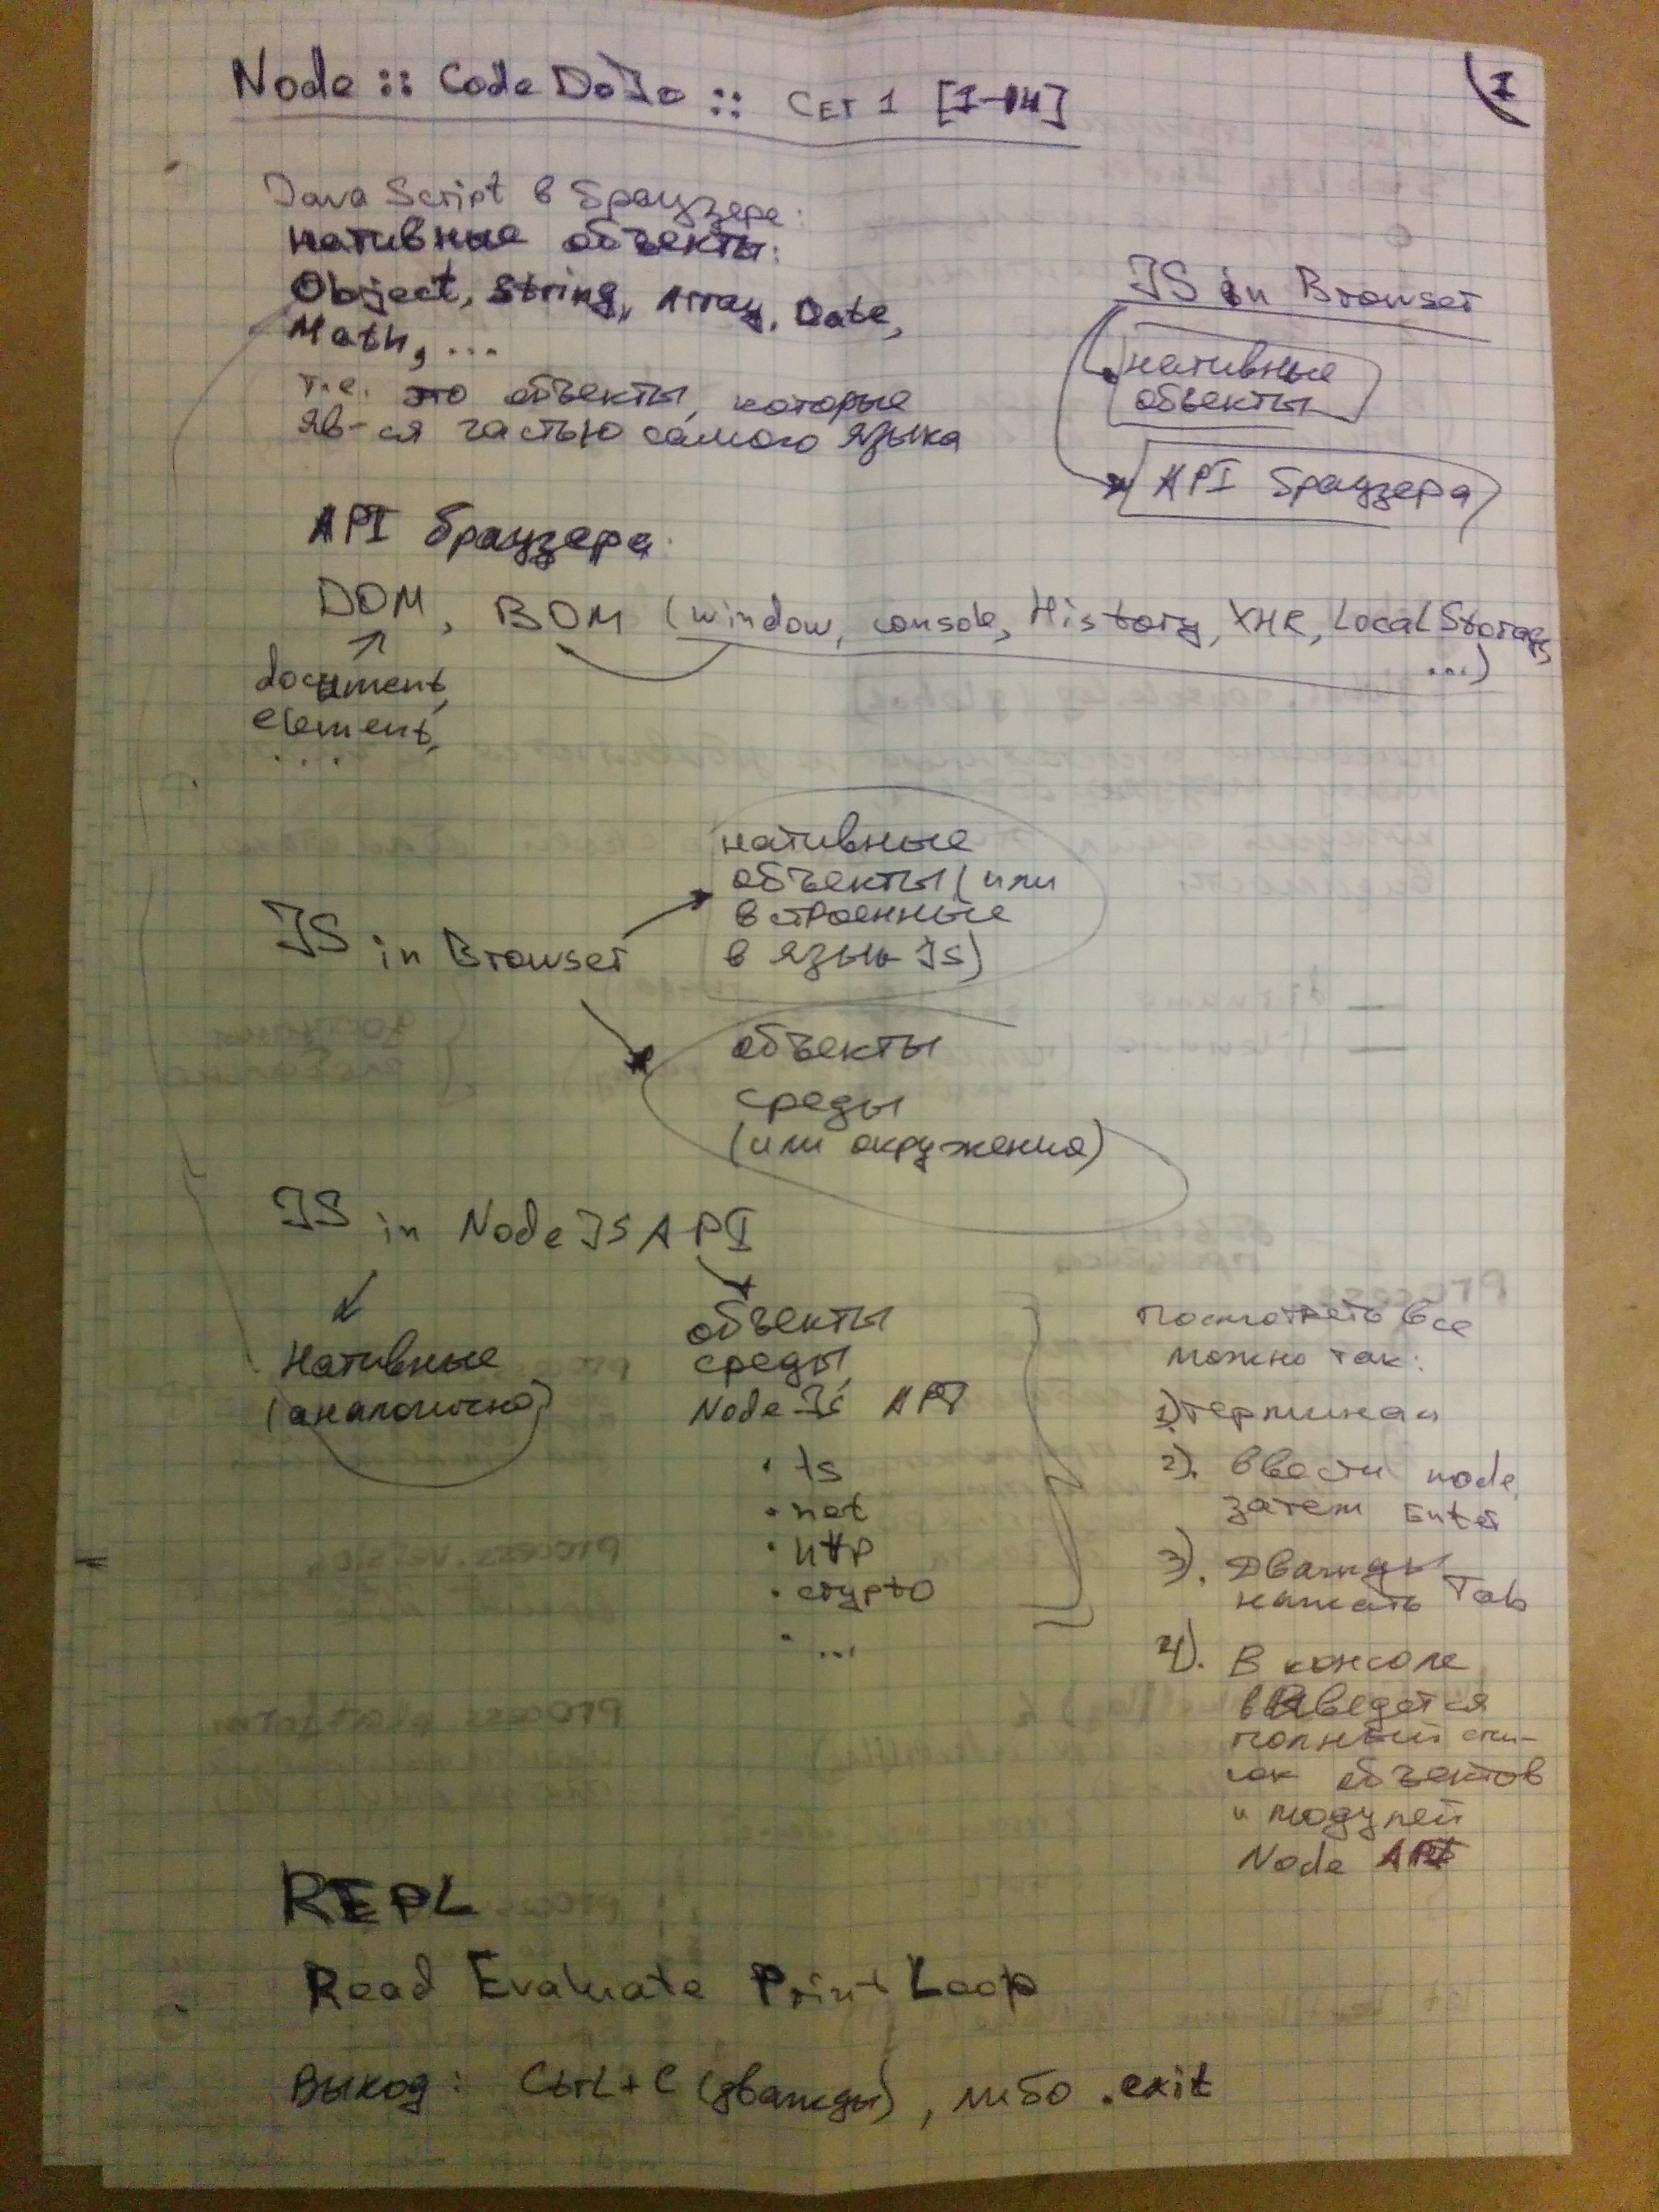 Node :: Code DoJo :: Сет 1 [1-14]
1
Java Script в браузере:
нативные объекты:
Object, String, Array, Date,
Math, ...
т.е. это объекты, которые
яв-ся частью самого языка
JS in Browser
нативные
объекты
API браузера
API браузера:
DOM, BOM (window, console, History, XHR, Local Storage,
...)
document,
element,
....
JS in Browser
нативные
объекты (или
встроенные
в язык JS)
объекты
среды
(или окружения)
JS in Node JS API
Нативные
(аналогично)
объекты
среды,
Node Js API
• fs
• net
• http
• crypto
• ...
Посмотреть все
можно так:
1) терминал
2). Ввести node,
затем Enter
3). Дважды
нажать Tab
4). В консоле
выведется
полный спи-
сок объектов
и модулей
Node API
REPL
Read Evaluate Print Loop
Выход: Ctrl+C (дважды), либо .exit